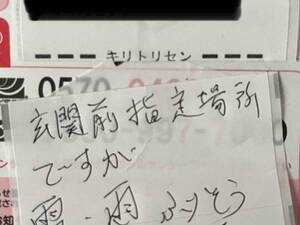 キリトリセン
0570
玄関前指定場所
ですが
雪・雨ふりそう